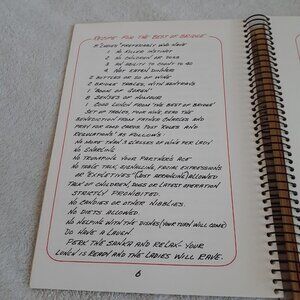 RECIPE FOR THE BEST OF BRIDGE
8 "LADIES" PREFERABLY WHO HAVE
1 NO KILLER INSTINCT
2 NO CHILDREN OR DOGS
3 AN ABILITY TO COUNT TO 40
4 NOT EATEN DINNER
2 BOTTLES OR SO OF WINE
2 BRIDGE TABLES, WITH ASHTRAYS
1 "ROOM OF GREEN"
8 SENSES OF HUMOUR
1 GOOD LUNCH FROM "THE BEST OF BRIDGE"
SET UP TABLES, POUR WINE, READ THE
BENEDICTION FROM FATHER CHARLES AND
PRAY FOR GOOD CARDS. POST "RULES AND
REGULATIONS" AS FOLLOWS:
NO MORE THAN 3 GLASSES OF WINE PER LADY
NO SNARLING
NO TRUMPING YOUR PARTNERS ACE
NO TABLE TALK, SIGNALLING, FACIAL EXPRESSIONS
OR "EXPLETIVES" (JUST ARRANGING) ALLOWED
TALK OF CHILDREN, DOGS OR LATEST OPERATION
STRICTLY PROHIBITED.
NO CANDIES OR OTHER NIBBLIES.
NO DIETS ALLOWED
NO HELPING WITH THE DISHES (YOUR TURN WILL COME)
DO HAVE A LAUGH
PERK THE SANKA AND RELAX - YOUR
LUNCH IS READY AND THE LADIES WILL RAVE.
6